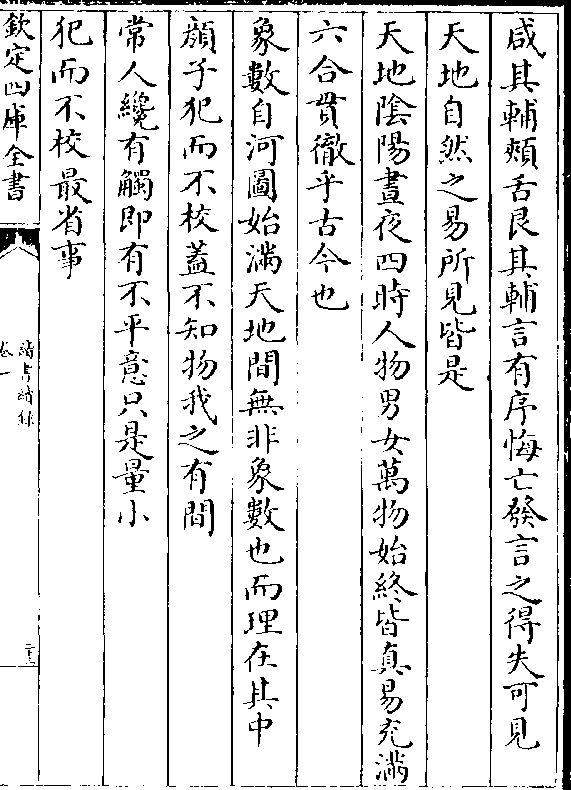 咸其輔頰舌艮其輔言有序悔亡發言之得失可見
天地自然之易所見皆是
天地陰陽晝夜四時人物男女萬物始終皆真易充滿
六合貫徹乎古今也
象數自河圖始滿天地間無非象數也而理在其中
顔子犯而不校蓋不知物我之有間
常人纔有觸即有不平意只是量小
犯而不校最省事
欽定四庫全書
讀書續録
卷一